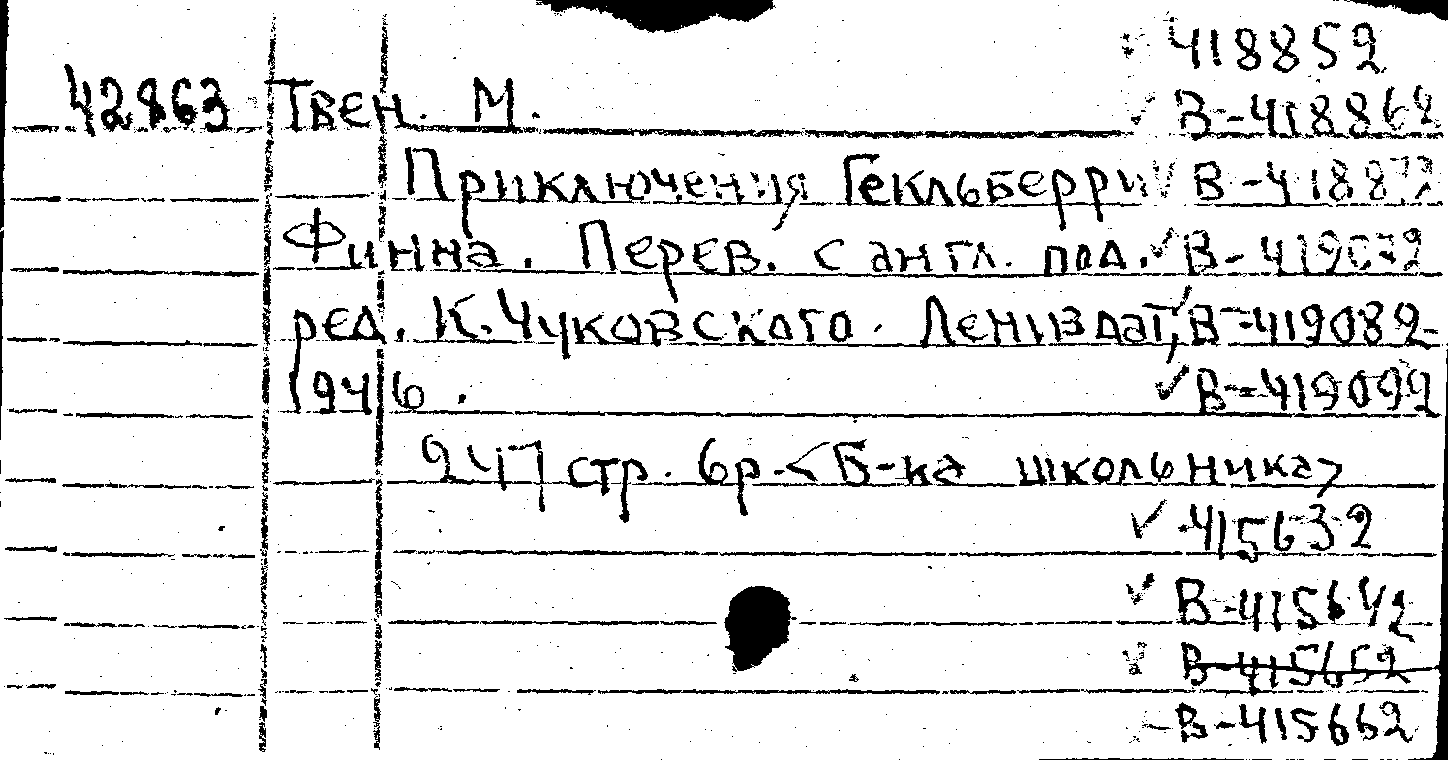 418852
42863 Твен. М. В-418862
Приключения Гекльберри В-418872
Финна. Перев. с англ. под. В-419072
ред. К. Чуковского. Лениздат, В-419082
1946. В-419092
247 стр. 6р. <Б-ка школьника>
415632
В-415642
В-415652
В-415662